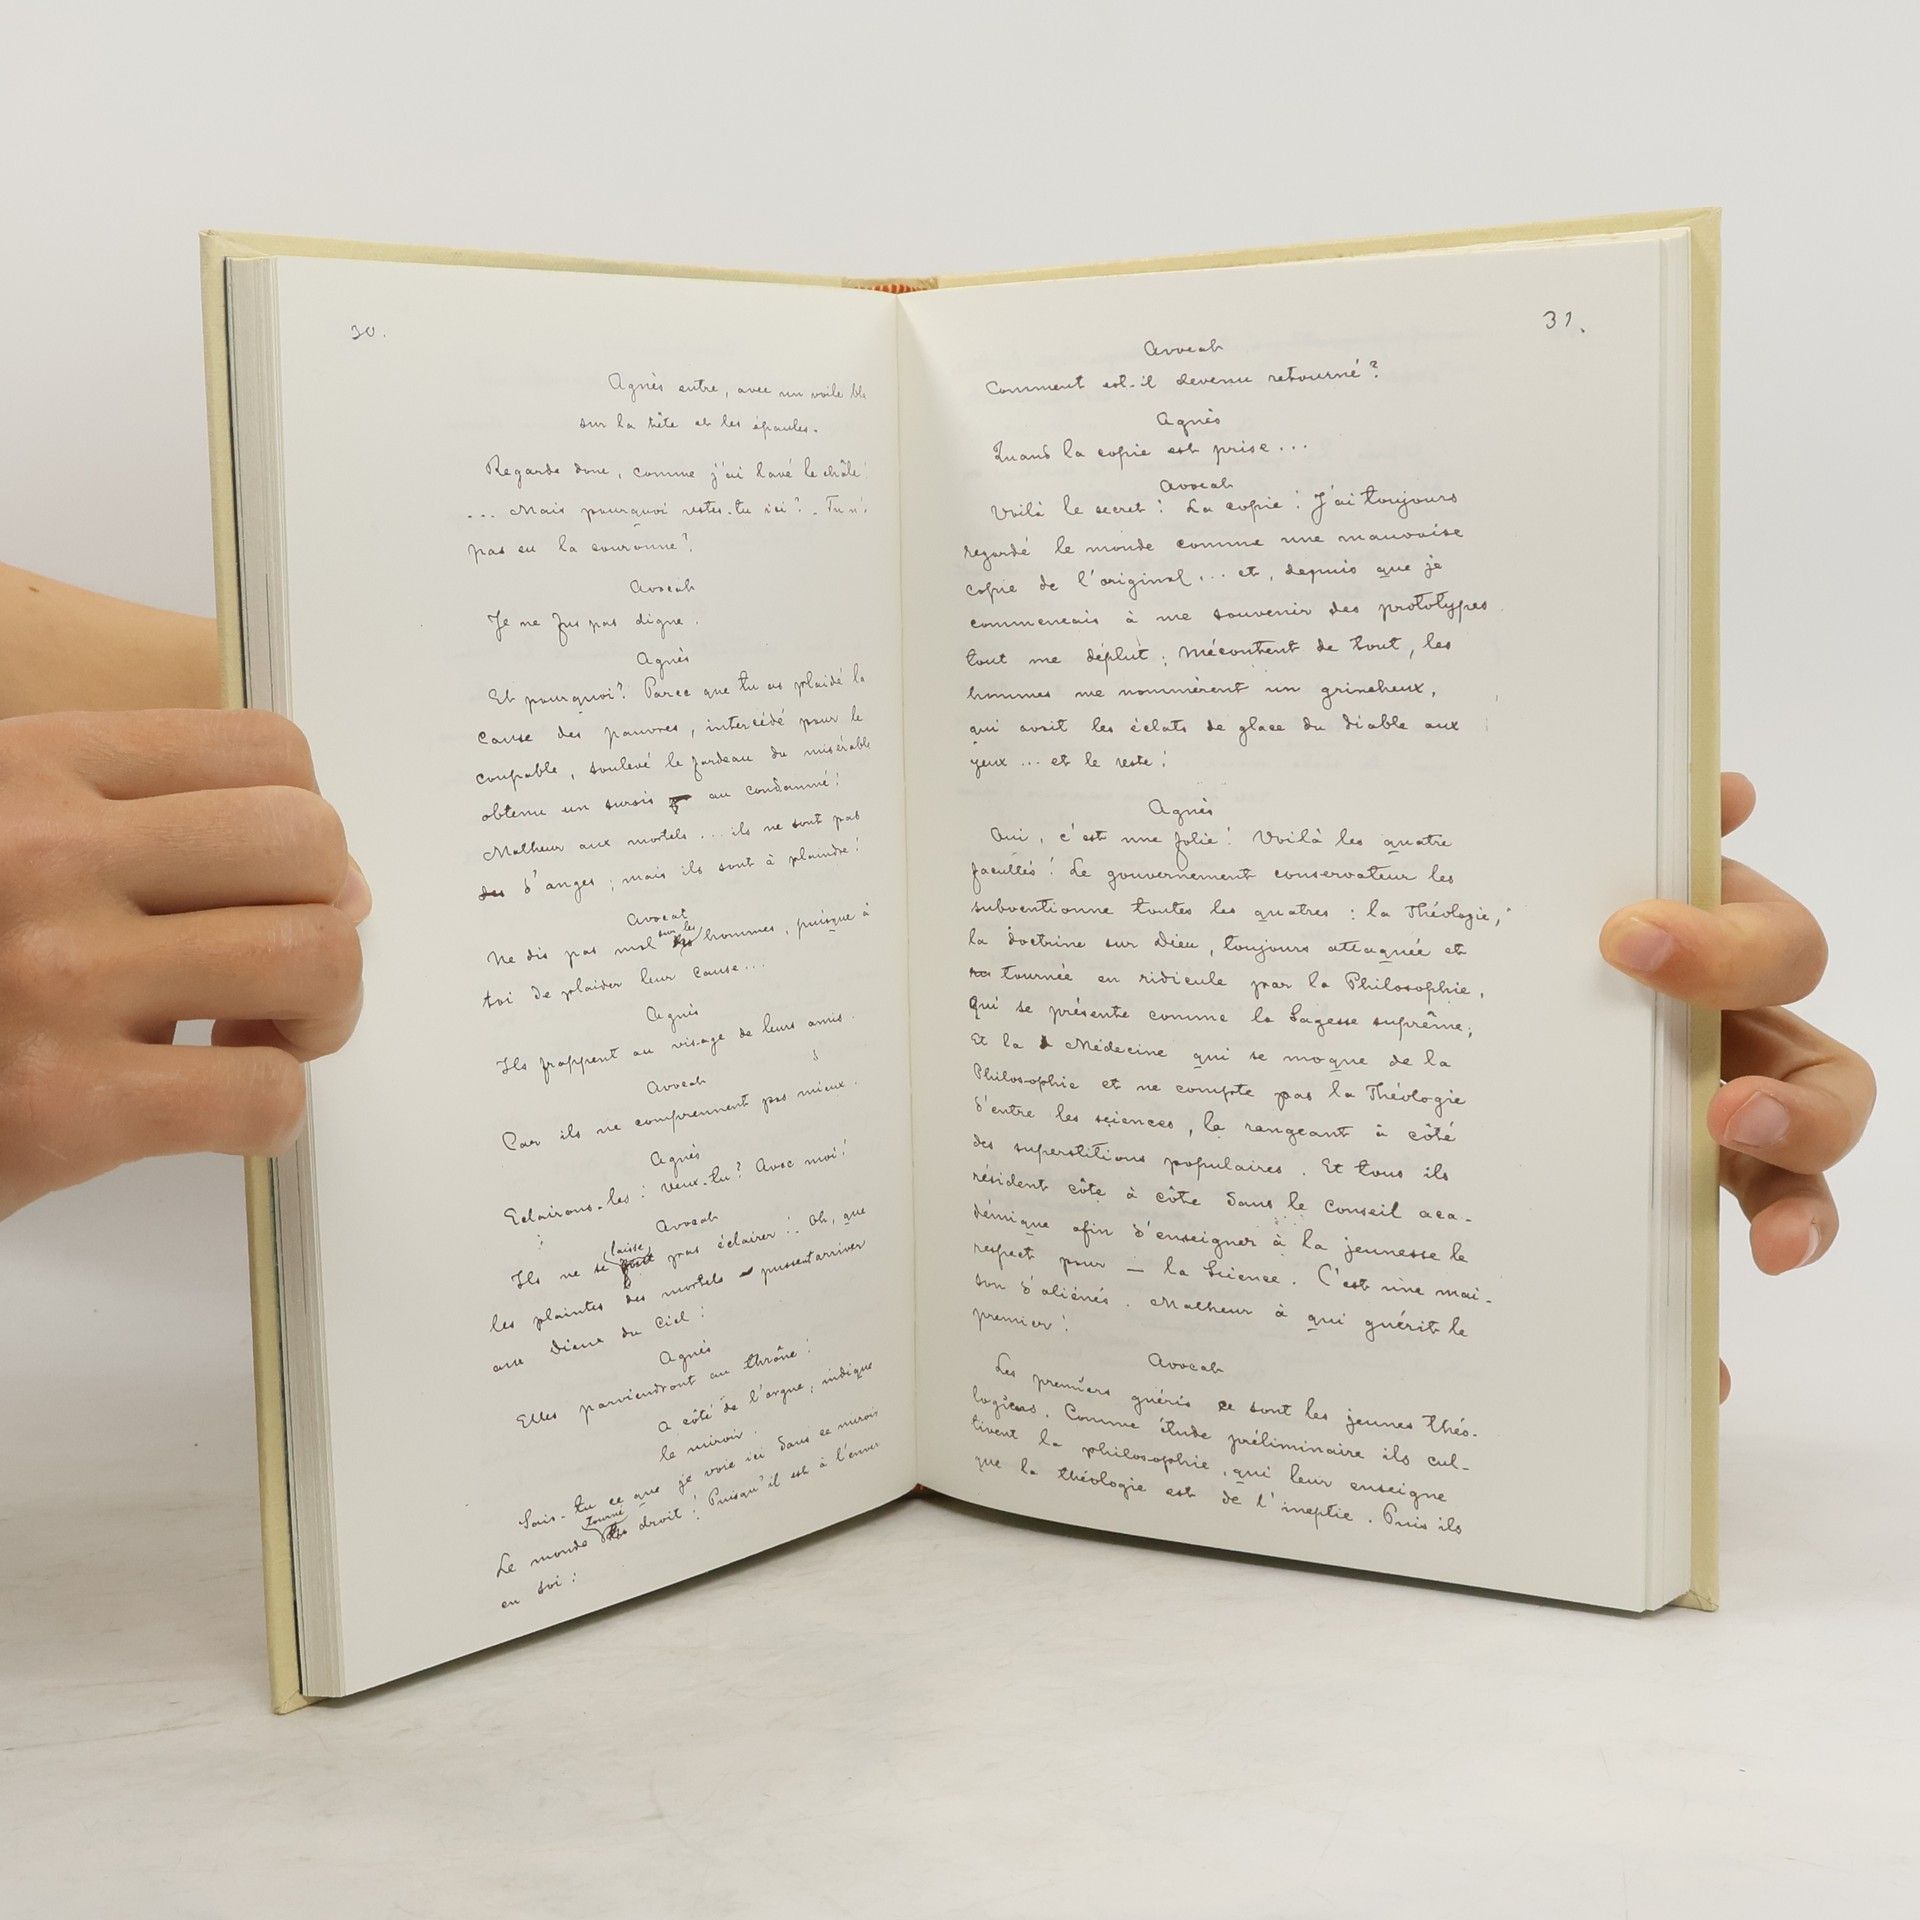 30.
Agnès entre, avec un voile
sur la tête et les épaules.
Regarde donc, comme j'ai lavé le châle!
... Mais pourquoi restes-tu ici? - Tu n'
pas eu la couronne?
Avocat
Je ne fus pas digne.
Agnès
Et pourquoi? Parce que tu as plaidé la
cause des pauvres, intercédé pour le
coupable, soulevé le fardeau du misérable
obtenu un sursis au condamné!
Malheur aux mortels ... ils ne sont pas
des d'anges; mais ils sont à plaindre!
Avocat
Ne dis pas mal sur les hommes, puisque à
toi de plaider leur cause...
Agnès
Ils frappent au visage de leurs amis.
Avocat
Car ils ne comprennent pas mieux.
Agnès
Eclairons-les! Veux-tu? Avec moi!
Avocat
Ils ne se laisse pas éclairer! Oh, que
les plaintes des mortels pussent arriver
aux Dieux du Ciel!
Agnès
Elles parviendront au thrône!
A côté de l'orgue, indique
le miroir.
Sais-tu ce que je voie ici dans ce miroir
Le monde tourné droit! Puisqu'il est à l'envers
en soi!
31.
Avocat
Comment est-il devenu retourné?
Agnès
Quand la copie est prise...
Avocat
Voilà le secret! La copie! J'ai toujours
regardé le monde comme une mauvaise
copie de l'original... et, depuis que je
commencais à me souvenir des prototypes
tout me déplut; mécontent de tout, les
hommes me nommèrent un grincheux,
qui avait les éclats de glace du diable aux
yeux ... et le reste!
Agnès
Oui, c'est une folie! Voilà les quatre
facultés! Le gouvernement conservateur les
subventionne toutes les quatres: la Théologie,
la doctrine sur Dieu, toujours attaquée et
tournée en ridicule par la Philosophie,
qui se présente comme la Sagesse suprême;
Et la Médecine qui se moque de la
Philosophie et ne compte pas la Théologie
d'entre les sciences, la rangeant à côté
des superstitions populaires. Et tous ils
résident côte à côte dans le Conseil aca-
démique afin d'enseigner à la jeunesse le
respect pour — la Science. C'est une mai-
son d'aliénés. Malheur à qui guérit le
premier!
Avocat
Les premiers guéris ce sont les jeunes théo-
logiens. Comme étude préliminaire ils cul-
tivent la philosophie, qui leur enseigne
que la théologie est de l'ineptie. Puis ils